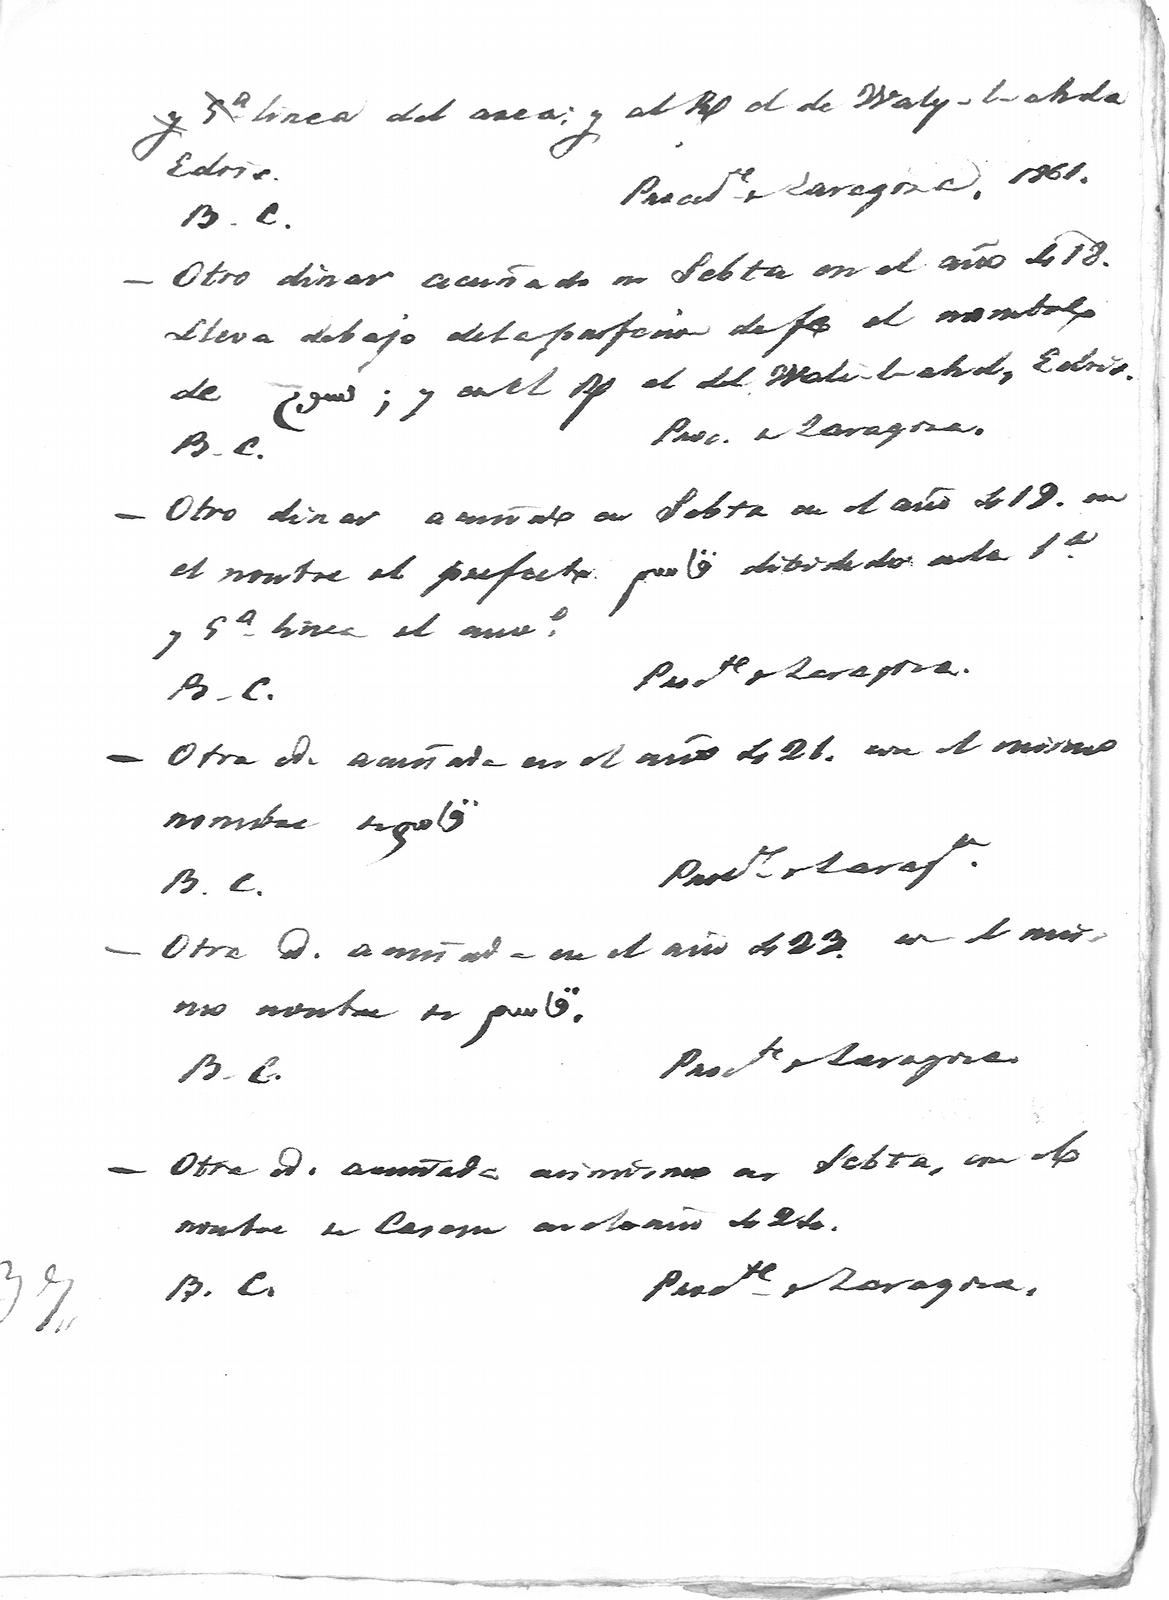 y 5ª linea del area; y al R/ el de Waly-l-ahda
Edris.
Proced.te de Zaragoza, 1861.
B. C.
— Otro dinar acuñado en Sebta en el año 418.
Lleva debajo de la profesion de fe el nombre
de ; y en el R/ el del Wali-l-ahd, Edris.
B. C. Proc. de Zaragoza.
— Otro dinar acuñado en Sebta en el año 419. con
el nombre el prefecto قاسم dibidido en la 1ª
y 5ª linea el anvº.
B. C. Prod.te de Zaragoza.
— Otra id. acuñada en el año 421. con el mismo
nombre de قاسم
B. C. Proced.te de Zarag.za
— Otra id. acuñada en el año 423. con el mis-
mo nombre de قاسم.
B. C. Proc.te de Zaragoza.
— Otra id. acuñada asimismo en Sebta, con el
nombre de Casem en el año 424.
B. C. Proc.te de Zaragoza.
37,,